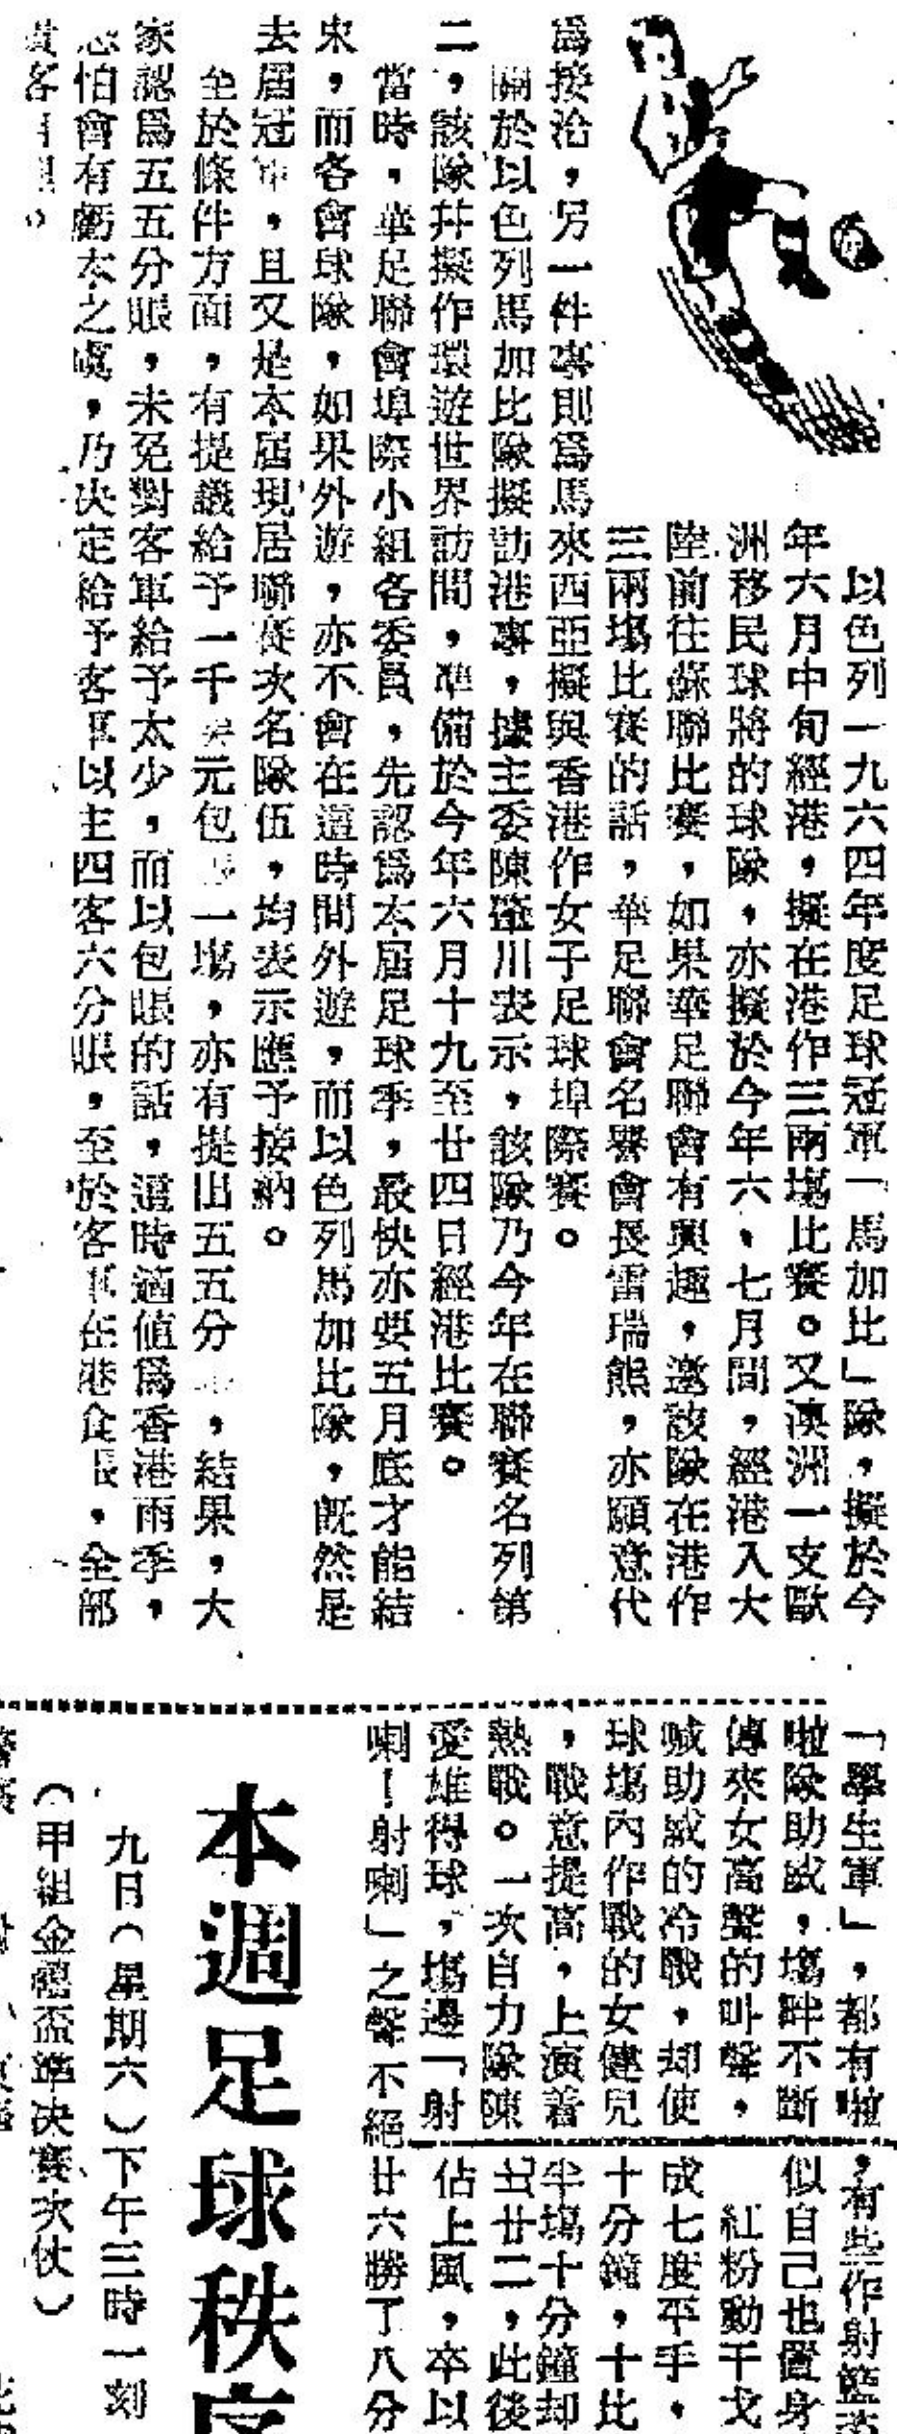 以色列一九六四年度足球冠軍「馬加比」隊，擬於今
年六月中旬經港，擬在港作三兩塲比賽。又澳洲一支歐
洲移民球將的球隊，亦擬於今年六、七月間，經港入大
陸前往蘇聯比賽，如果華足聯會有興趣，邀該隊在港作
三兩塲比賽的話，華足聯會名譽會長雷瑞熊，亦願意代
爲接洽，另一件事則爲馬來西亞擬與香港作女子足球埠際賽。
關於以色列馬加比隊擬訪港事，據主委陳肇川表示，該隊乃今年在聯賽名列第
二，該隊幷擬作環遊世界訪問，準備於今年六月十九至廿四日經港比賽。
當時，華足聯會埠際小組各委員，先認爲本屆足球季，最快亦要五月底才能結
束，而各會球隊，如果外遊，亦不會在這時間外遊，而以色列馬加比隊，既然是
去屆冠軍，且又是本屆現居聯賽次名隊伍，均表示應予接納。
至於條件方面，有提議給予一千元包一塲，亦有提出五五分，結果，大
家認爲五五分賬，未免對客軍給予太少，而以包賬的話，這時適值爲香港雨季，
恐怕會有虧本之虞，乃决定給予客軍以主四客六分賬，至於客軍在港食，全部
責客自理。
「學生軍」，都有啦
啦隊助威，塲畔不斷
傳來女高聲的叫聲，
喊助威的冷戰，却使
球塲內作戰的女健兒
，戰意提高，上演着
熱戰。一次自力隊陳
愛雄得球，塲邊「射
喇！射喇」之聲不絕
，有些作射籃
似自己也置身
紅粉動干戈
成七度平手，
十分鐘，十比
半塲十分鐘却
廿二，此後
佔上風，卒以
廿六勝了八分
本週足球秩序
九日（星期六）下午三時一刻
（甲組金禧盃準决賽次仗）